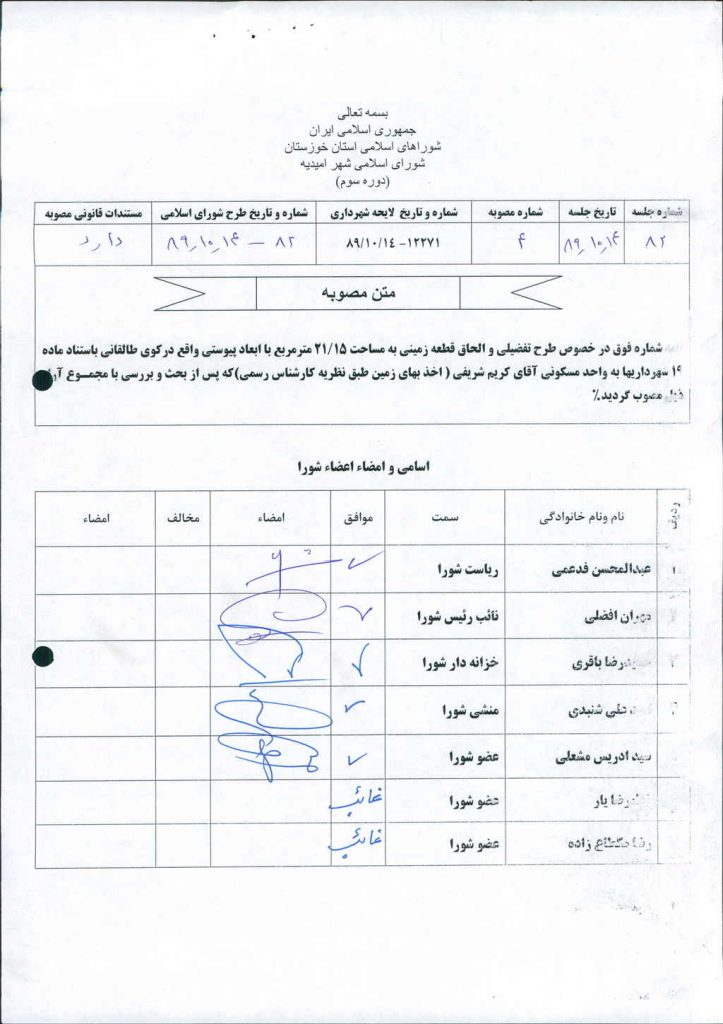 بسمه تعالی
جمهوری اسلامی ایران
شوراهای اسلامی استان خوزستان
شورای اسلامی شهر امیدیه
(دوره سوم)
شماره جلسه تاریخ جلسه شماره مصوبه شماره و تاریخ لایحه شهرداری شماره و تاریخ طرح شورای اسلامی مستندات قانونی مصوبه
۸۲ ۸۹٫۱۰٫۱۴ ۴ ۱۲۲۷۱- ۸۹/۱۰/۱۴ ۸۲ – ۸۹٫۱۰٫۱۴ دارد
متن مصوبه
شماره فوق در خصوص طرح تفضیلی و الحاق قطعه زمینی به مساحت ۲۱/۱۵ مترمربع با ابعاد پیوستی واقع درکوی طالقانی باستناد ماده
شهرداریها به واحد مسکونی آقای کریم شریفی ( اخذ بهای زمین طبق نظریه کارشناس رسمی)که پس از بحث و بررسی با مجموع
مصوب گردید٪
اسامی و امضاء اعضاء شورا
ردیف نام ونام خانوادگی سمت موافق امضاء مخالف امضاء
۱ عبدالمحسن فدعمی ریاست شورا
مهران افضلی نائب رئیس شورا
باقری خزانه دار شورا
شنبدی منشی شورا
سید ادریس مشعلی عضو شورا
یار عضو شورا غائب
رضا زاده عضو شورا غائب